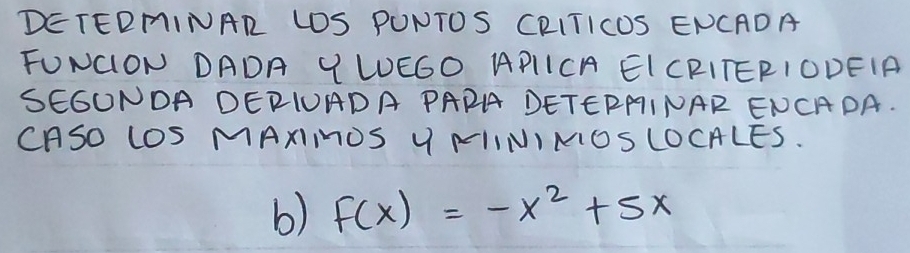 DETERMINAR LOS PUNTOS CRITICOS ENCADA
FUNCION DADA Y LUEGO APLICA El CRITERIO DE LA
SEGUNDA DERIVADA PARA DETERMINAR ENCADA.
CASO LOS MAXIMOS Y MINIMOS LOCALES.
b) F(x) = -x² + 5x